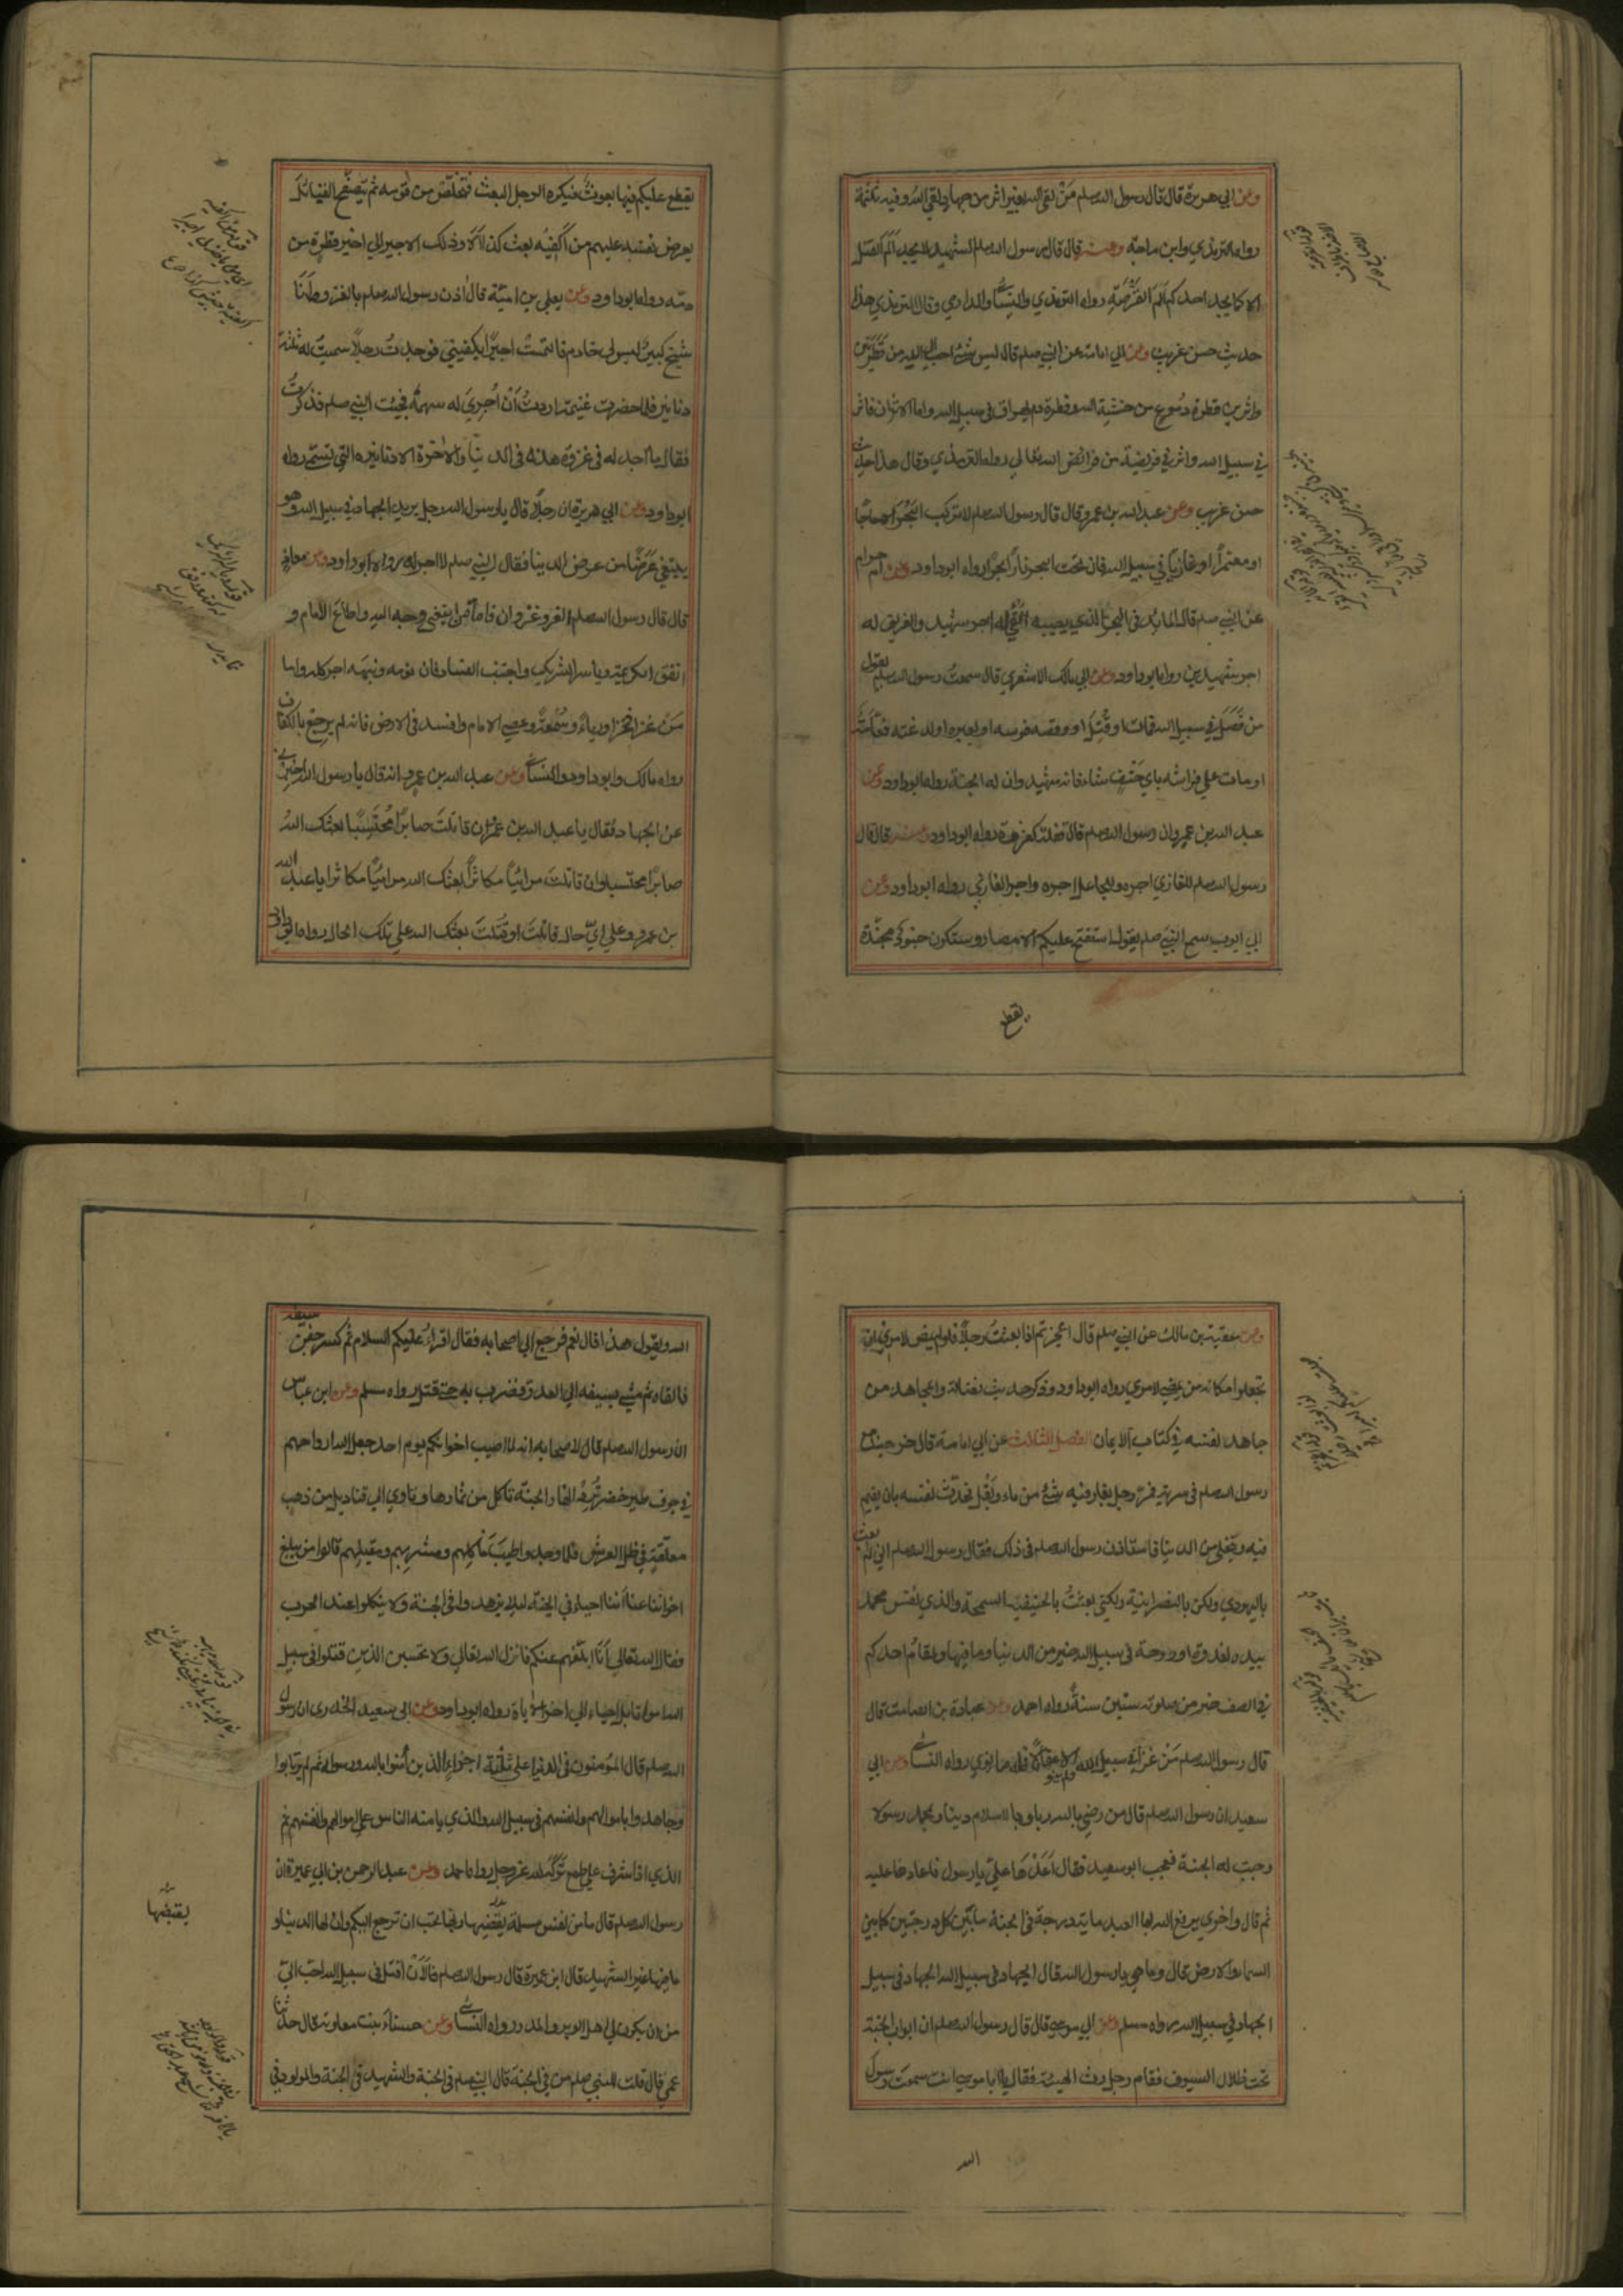 وعن ابي هريرة قال قال رسول الله صلعم من لقي الله بغير اثر من جهاد لقي الله وفيه ثلمة
رواه الترمذي وابن ماجه وعنه قال قال رسول الله صلعم الشهيد لا يجد الم القتل
الا كما يجد احدكم الم القرصة رواه الترمذي والنسائي والدارمي وقال الترمذي هذا
حديث حسن غريب وعن ابي امامة عن النبي صلعم قال ليس شئ احب الى الله من قطرتين
واثرين قطرة دموع من خشية الله وقطرة دم يهراق في سبيل الله واما الاثران فاثر
في سبيل الله واثر في فريضة من فرائض الله تعالى رواه الترمذي وقال هذا حديث
حسن غريب وعن عبد الله بن عمرو قال قال رسول الله صلعم لا تركب البحر الا حاجا
او معتمرا او غازيا في سبيل الله فان تحت البحر نارا رواه ابو داود وعن ام حرام
عن النبي صلعم قال المائد في البحر الذي يصيبه القئ له اجر شهيد والغريق له
اجر شهيدين رواه ابو داود وعن ابي مالك الاشعري قال سمعت رسول الله صلعم يقول
من فصل في سبيل الله فمات او قتل او وقصه فرسه او بعيره او لدغته هامة
او مات على فراشه باي حتف شاء فانه شهيد وان له الجنة رواه ابو داود وعن
عبد الله بن عمرو ان رسول الله صلعم قال قفلة كغزوة رواه ابو داود وعنه قال قال
رسول الله صلعم للغازي اجره وللجاعل اجره واجر الغازي رواه ابو داود وعن
ابي ايوب سمع النبي صلعم يقول ستفتح عليكم الامصار وستكون جنود مجندة
يقطع
يقطع عليكم فيها بعوث فيكره الرجل البعث فيتخلص من قومه ثم يتصفح القبائل
يعرض نفسه عليهم من اكفيه بعث كذا الا وذلك الاجير الى اخر قطرة من
دمه رواه ابو داود وعن يعلى بن امية قال اذن رسول الله صلعم بالغزو وانا
شيخ كبير ليس لي خادم فالتمست اجيرا يكفيني فوجدت رجلا سميت له ثلثة
دنانير فلما حضرت غنيمة اردت ان اجري له سهمه فجئت النبي صلعم فذكرت
فقال ما اجد له في غزوة هذه في الدنيا والاخرة الا دنانيره التي تسمى رواه
ابو داود وعن ابي هريرة ان رجلا قال يا رسول الله رجل يريد الجهاد في سبيل الله وهو
يبتغي عرضا من عرض الدنيا فقال النبي صلعم لا اجر له رواه ابو داود وعن معاذ
قال قال رسول الله صلعم الغزو غزوان فاما من ابتغى وجه الله واطاع الامام و
انفق الكريمة وياسر الشريك واجتنب الفساد فان نومه ونبهه اجر كله واما
من غزا فخرا ورياء وسمعة وعصى الامام وافسد في الارض فانه لم يرجع بالكفاف
رواه مالك وابو داود والنسائي وعن عبد الله بن عمرو انه قال يا رسول الله اخبرني
عن الجهاد فقال يا عبد الله بن عمرو ان قاتلت صابرا محتسبا بعثك الله
صابرا محتسبا وان قاتلت مرائيا مكاثرا بعثك الله مرائيا مكاثرا يا عبد الله
بن عمرو وعلى اي حال قاتلت او قتلت بعثك الله على تلك الحال رواه ابو داود
وعن عقبة بن مالك عن النبي صلعم قال اعجزتم اذا بعثت رجلا فلم يمض لامري ان
تجعلوا مكانه من يمضي لامري رواه ابو داود وذكر حديث فضالة والمجاهد من
جاهد نفسه في كتاب الايمان الفصل الثالث عن ابي امامة قال خرجنا مع
رسول الله صلعم في سرية فمر رجل بغار فيه شئ من ماء وبقل فحدث نفسه بان يقيم
فيه ويتخلى من الدنيا فاستاذن رسول الله صلعم في ذلك فقال رسول الله صلعم اني لم ابعث
باليهودية ولكن بالنصرانية ولكني بعثت بالحنيفية السمحة والذي نفس محمد
بيده لغدوة او روحة في سبيل الله خير من الدنيا وما فيها ولمقام احدكم
في الصف خير من صلوته ستين سنة رواه احمد وعن عبادة بن الصامت قال
قال رسول الله صلعم من غزا في سبيل الله ولم ينو الا عقالا فله ما نوى رواه النسائي وعن ابي
سعيد ان رسول الله صلعم قال من رضي بالله ربا وبالاسلام دينا وبمحمد رسولا
وجبت له الجنة فعجب ابو سعيد فقال اعدها علي يا رسول فاعادها عليه
ثم قال واخرى يرفع الله بها العبد ماية درجة في الجنة ما بين كل درجتين كما بين
السماء والارض قال وما هي يا رسول الله قال الجهاد في سبيل الله الجهاد في سبيل
الجهاد في سبيل الله رواه مسلم وعن ابي موسى قال قال رسول الله صلعم ان ابواب الجنة
تحت ظلال السيوف فقام رجل رث الهيئة فقال يا ابا موسى انت سمعت رسول
الله
الله يقول هذا قال نعم فرجع الى اصحابه فقال اقراء عليكم السلام ثم كسر جفن سيفه
فالقاه ثم مشى بسيفه الى العدو فضرب به حتى قتل رواه مسلم وعن ابن عباس
ان رسول الله صلعم قال لاصحابه انه لما اصيب اخوانكم يوم احد جعل الله ارواحهم
في جوف طير خضر ترد انهار الجنة تاكل من ثمارها وتاوي الى قناديل من ذهب
معلقة في ظل العرش فلما وجدوا طيب ماكلهم ومشربهم ومقيلهم قالوا من يبلغ
اخواننا عنا اننا احياء في الجنة لئلا يزهدوا في الجنة ولا ينكلوا عند الحرب
فقال الله تعالى انا ابلغهم عنكم فانزل الله تعالى ولا تحسبن الذين قتلوا في سبيل
الله امواتا بل احياء الى اخر الاية رواه ابو داود وعن ابي سعيد الخدري ان رسول
الله صلعم قال المؤمنون في الدنيا على ثلثة اجزاء الذين امنوا بالله ورسوله ثم لم يرتابوا
وجاهدوا باموالهم وانفسهم في سبيل الله والذي يامنه الناس على اموالهم وانفسهم ثم
الذي اذا اشرف على طمع تركه لله عز وجل رواه احمد وعن عبد الرحمن بن ابي عميرة ان
رسول الله صلعم قال ما من نفس مسلمة يقبضها ربها تحب ان ترجع اليكم وان لها الدنيا و
ما فيها غير الشهيد قال ابن عميرة قال رسول الله صلعم فلان اقتل في سبيل الله احب الي
من ان يكون لي اهل الوبر والمدر رواه النسائي وعن حسناء بنت معاوية قال حدثنا
عمي قال قلت للنبي صلعم من في الجنة قال النبي صلعم في الجنة والشهيد في الجنة والمولود في
يقبضها